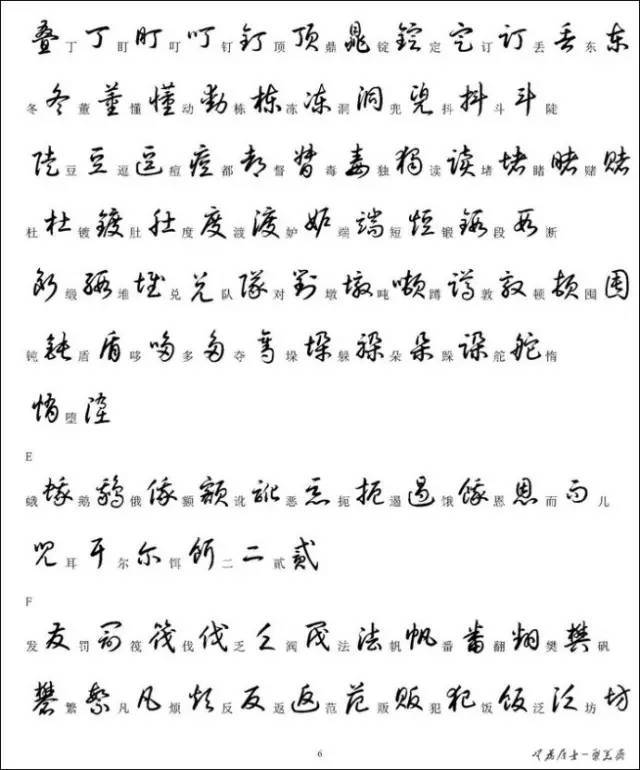 叠 丁 丁 盯 盯 叮 叮 钉 钉 顶 顶 鼎 鼎 锭 锭 定 定 订 订 丢 丢 东 东
冬 冬 董 董 懂 懂 动 动 栋 栋 冻 冻 洞 洞 兜 兜 抖 抖 斗 斗 陡
陡 豆 豆 逗 逗 痘 痘 都 都 督 督 毒 毒 独 独 读 读 堵 堵 睹 睹 赌 赌
杜 杜 镀 镀 肚 肚 度 度 渡 渡 妒 妒 端 端 短 短 锻 锻 段 段 断
断 缎 缎 堆 堆 兑 兑 队 队 对 对 墩 墩 吨 吨 蹲 蹲 敦 敦 顿 顿 囤 囤
钝 钝 盾 盾 哆 哆 多 多 夺 夺 垛 垛 躲 躲 朵 朵 跺 跺 舵 舵 惰
惰 堕 堕
E
蛾 蛾 鹅 鹅 俄 俄 额 额 讹 讹 恶 恶 扼 扼 遏 遏 饿 饿 恩 恩 而 而 儿
儿 耳 耳 尔 尔 饵 饵 二 二 贰 贰
F
发 发 罚 罚 筏 筏 伐 伐 乏 乏 阀 阀 法 法 帆 帆 番 番 翻 翻 樊 樊 矾
矾 繁 繁 凡 凡 烦 烦 反 反 返 返 范 范 贩 贩 犯 犯 饭 饭 泛 泛 坊 坊
6